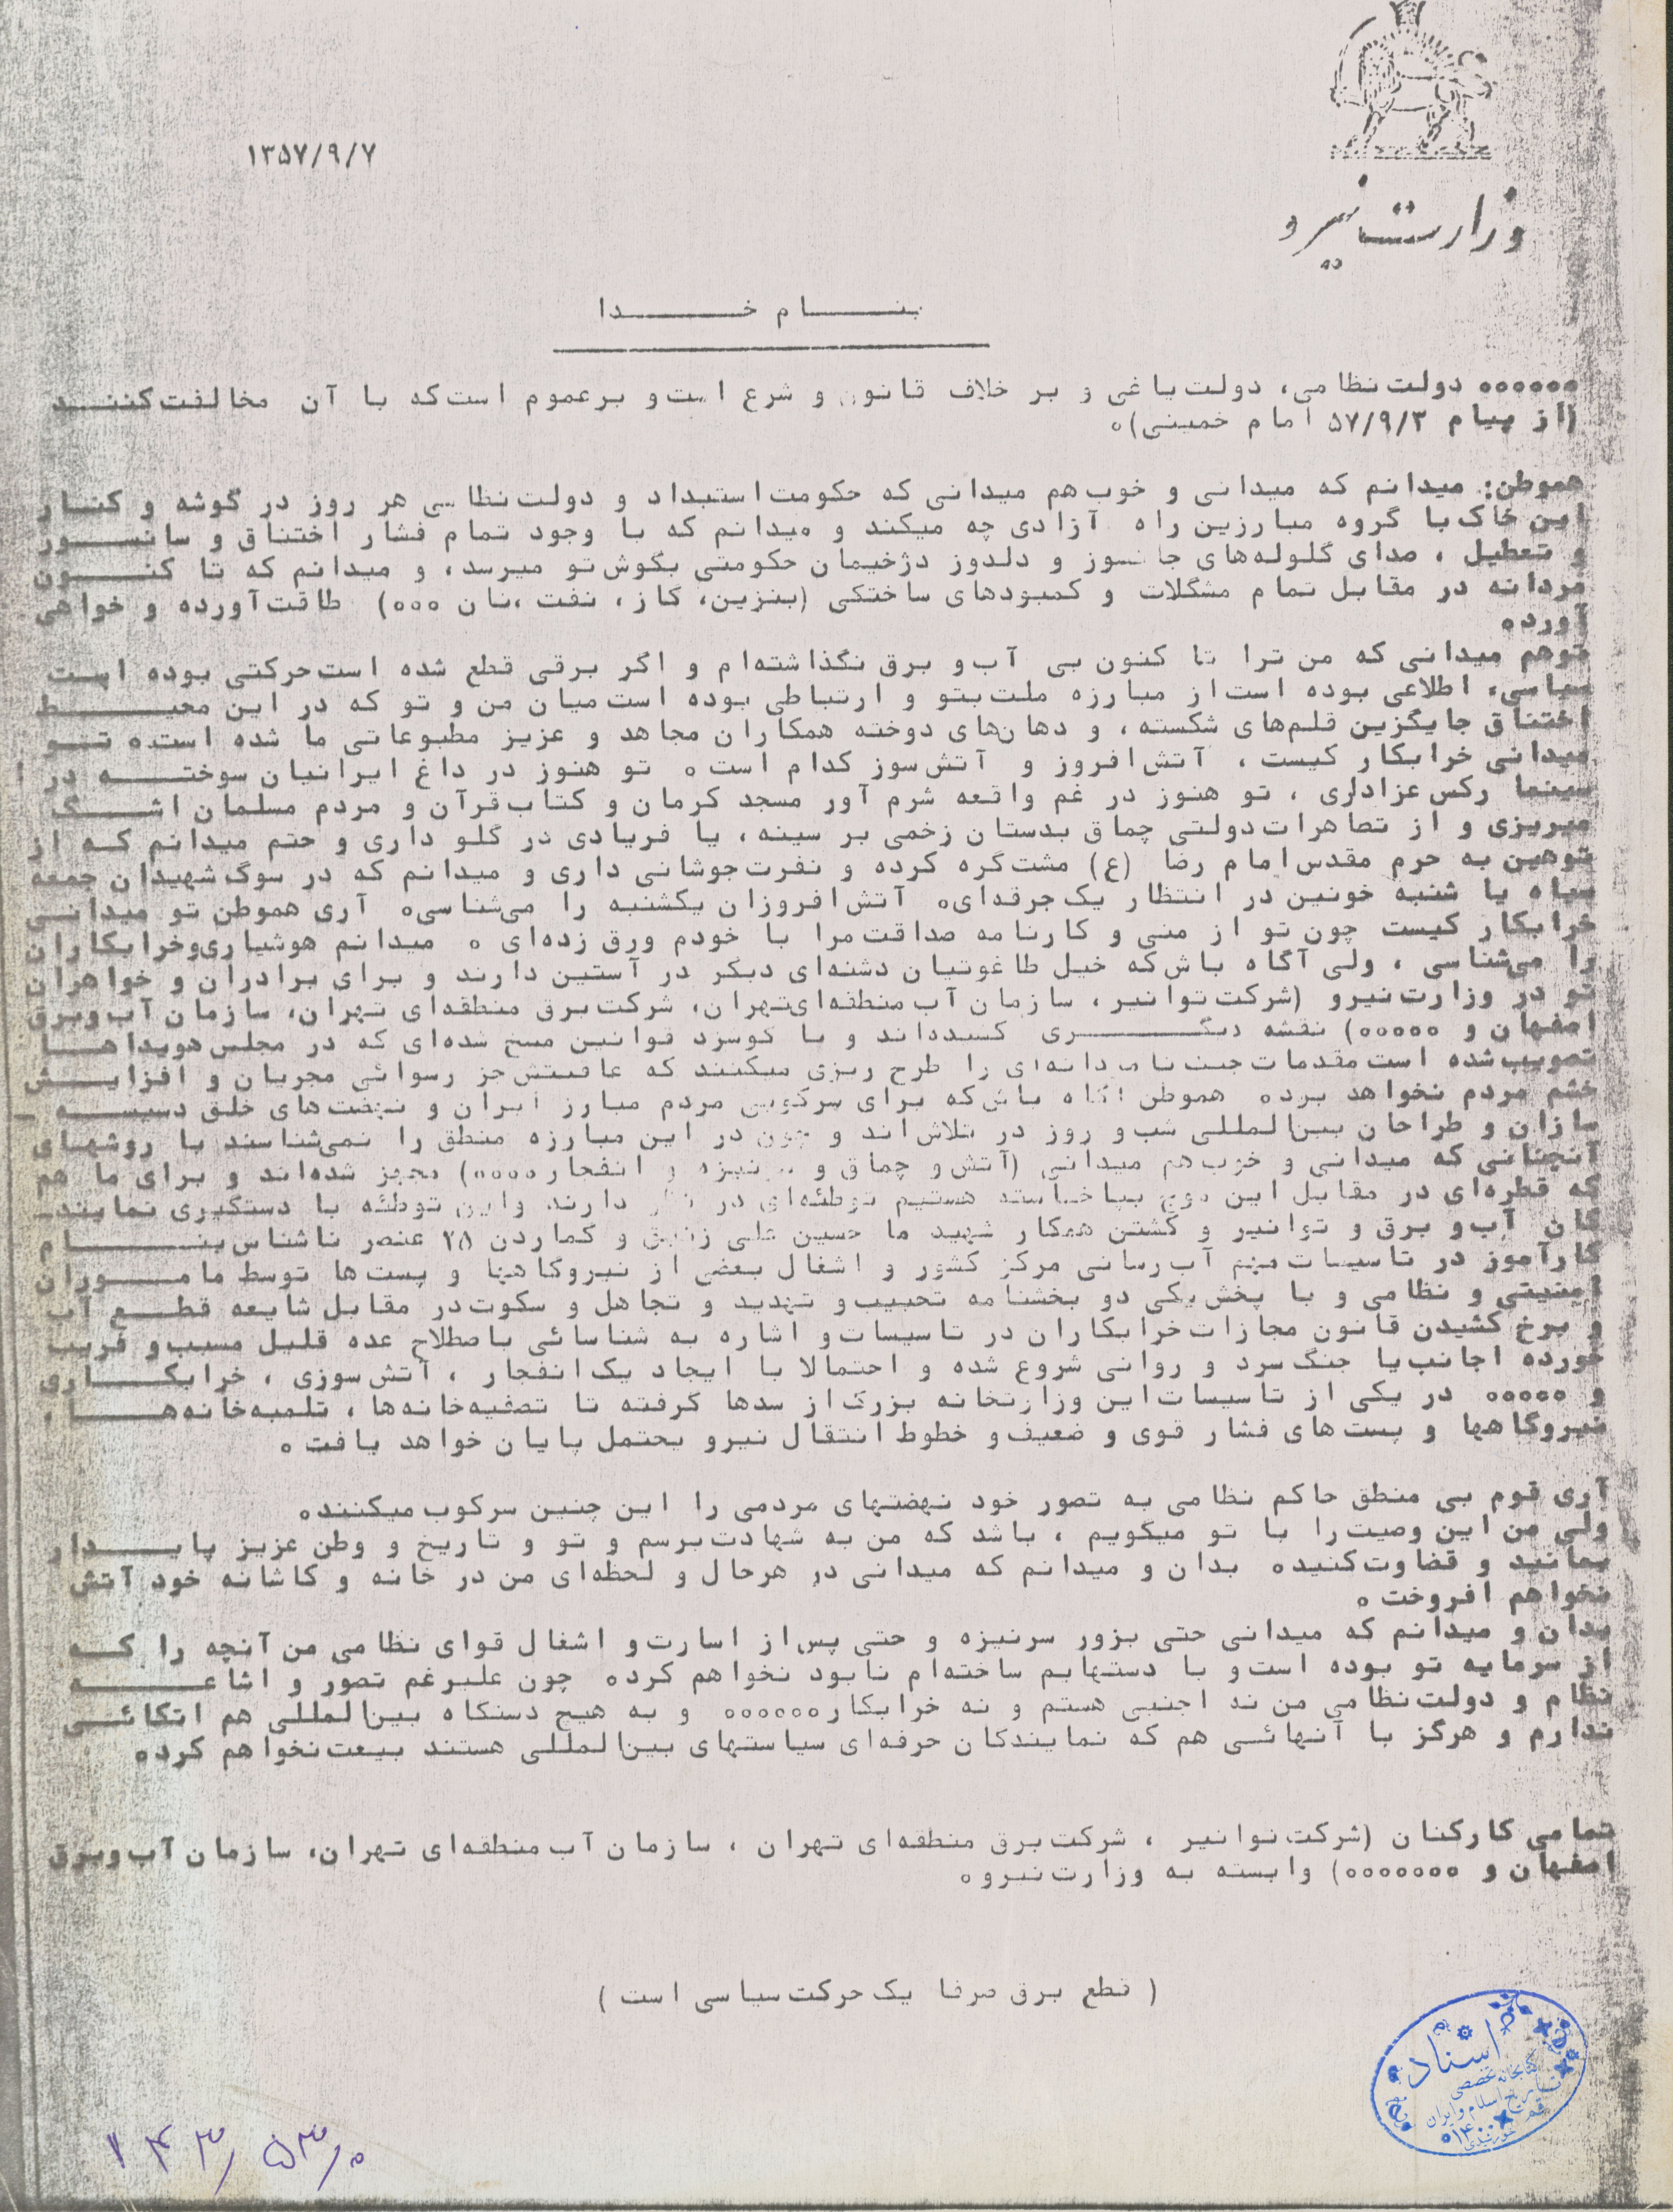 ۱۳۵۷/۹/۷
وزارت نیرو
بنام خدا
۰۰۰۰۰۰ دولت نظامی، دولت یاغی و بر خلاف قانون و شرع است و برعموم است که با آن مخالفت کننــد
(از پیام ۵۷/۹/۳ امام خمینی)۰
هموطن: میدانم که میدانی و خوب هم میدانی که حکومت استبداد و دولت نظامی هر روز در گوشه و کنــار
این خاک با گروه مبارزین راه آزادی چه میکند و میدانم که با وجود تمام فشار اختناق و سانســور
و تعطیل ، صدای گلوله‌های جانسوز و دلدوز دژخیمان حکومتی بگوش تو میرسد، و میدانم که تا کنــون
مردانه در مقابل تمام مشگلات و کمبودهای ساختگی (بنزین، گاز، نفت ،نان ۰۰۰) طاقت آورده و خواهی
آورد۰
توهم میدانی که من ترا تا کنون بی آب و برق نگذاشته‌ام و اگر برقی قطع شده است حرکتی بوده اســت
سیاسی، اطلاعی بوده است از مبارزه ملت بتو و ارتباطی بوده است میان من و تو که در این محیــط
اختناق جایگزین قلم‌های شکسته ، و دهان‌های دوخته همکاران مجاهد و عزیز مطبوعاتی ما شده است۰ تــو
میدانی خرابکار کیست ، آتش افروز و آتش سوز کدام است۰ تو هنوز در داغ ایرانیان سوختــه در
سینما رکس عزاداری ، تو هنوز در غم واقعه شرم آور مسجد کرمان و کتاب قرآن و مردم مسلمان اشــگ
میریزی و از تضاهرات دولتی چماق بدستان زخمی بر سینه ، یا فریادی در گلو داری و حتم میدانم کــه از
توهین به حرم مقدس امام رضا (ع) مشت گره کرده و نفرت جوشانی داری و میدانم که در سوگ شهیدان جمعه
سیاه یا شنبه خونین در انتظار یک جرقه‌ای۰ آتش افروزان یکشنبه را می‌شناسی۰ آری هموطن تو میدانــی
خرابکار کیست چون تو از منی و کارنامه صداقت مرا با خودم ورق زده‌ای ۰ میدانم هوشیاری‌وخرابکاران
را می‌شناسی ، ولی آگاه باش که خیل طاغوتیان دشنه‌ای دیگر در آستین دارند و برای برادران و خواهران
تو در وزارت نیرو (شرکت توانیر، سازمان آب منطقه‌ای‌تهران، شرکت برق منطقه‌ای تهران، سازمان آب‌وبرق
اصفهان و ۰۰۰۰۰) نقشه دیگــری کشیده‌اند و با گوشزد قوانین مسخ شده‌ای که در مجلس هویداهــا
تصویب شده است مقدمات را طرح ریزی میکنند که عاقبتش جز رسوائی مجریان و افزایــش
خشم مردم نخواهد بود۰ هموطن آگاه باش که برای سرکوبی مردم مبارز ایران و نهضت‌های خلق دسیســه ـ
سازان و طراحان بین‌المللی شب و روز در تلاش‌اند و چون در این مبارزه منطق را نمی‌شناسند با روشهــای
آنچنانی که میدانی و خوب هم میدانی (آتش و چماق و سر نیزه و انفجار۰۰۰۰۰) مجهز شده‌اند و برای ما هم
که قطره‌ای در مقابل این موج بپاخاسته هستیم توطئه‌ای در دارند واین توطئه با دستگیری نماینده‌ـ
گان آب و برق و توانیر و کشتن همکار شهید ما حسین علی و گماردن ۲۸ عنصر ناشناس بنــام
کارآموز در تاسیسات مهم آب رسانی مرکز کشور و اشغال بعضی از نیروگاهها و پست‌ها توسط مامــوران
امنیتی و نظامی و با پخش یکی دو بخشنامه تحبیب و تهدید و تجاهل و سکوت در مقابل شایعه قطــع آب
و برخ کشیدن قانون مجازات خرابکاران در تاسیسات و اشاره به شناسائی باصطلاح عده قلیل مسبب و فریب
خورده اجانب یا جنگ سرد و روانی شروع شده و احتمالا با ایجاد یک انفجار ، آتش سوزی ، خرابکــاری
و ۰۰۰۰۰ در یکی از تاسیسات این وزارتخانه بزرگ از سدها گرفته تا تصفیه‌خانه‌ها ، تلمبه‌خانه‌هــا ،
نیروگاهها و پست‌های فشار قوی و ضعیف و خطوط انتقال نیرو بحتمل پایان خواهد یافت۰
آری قوم بی منطق حاکم نظامی به تصور خود نهضتهای مردمی را این چنین سرکوب میکنند۰
ولی من این وصیت را با تو میگویم ، باشد که من به شهادت برسم و تو و تاریخ و وطن عزیز پایــدار
بمانید و قضاوت کنید۰ بدان و میدانم که میدانی در هرحال و لحظه‌ای من در خانه و کاشانه خود آتش
نخواهم افروخت ۰
بدان و میدانم که میدانی حتی بزور سرنیزه و حتی پس از اسارت و اشغال قوای نظامی من آنچه را کــه
از سرمایه تو بوده است و با دستهایم ساخته‌ام نابود نخواهم کرد۰ چون علیرغم تصور و اشاعــه
نظام و دولت نظامی من نه اجنبی هستم و نه خرابکار۰۰۰۰۰۰ و به هیچ دستگاه بین‌المللی هم اتکائــی
ندارم و هرگز با آنهائی هم که نمایندگان حرفه‌ای سیاستهای بین‌المللی هستند بیعت نخواهم کرد۰
تمامی کارکنان (شرکت توانیر ، شرکت برق منطقه‌ای تهران ، سازمان آب منطقه‌ای تهران، سازمان آب‌وبرق
اصفهان و ۰۰۰۰۰۰۰) وابسته به وزارت نیرو۰
( قطع برق صرفا یک حرکت سیاسی است )
اسناد
کتابخانه تخصصی
تاریخ اسلام و ایران
قم
۱۴۳/۵۳/۰